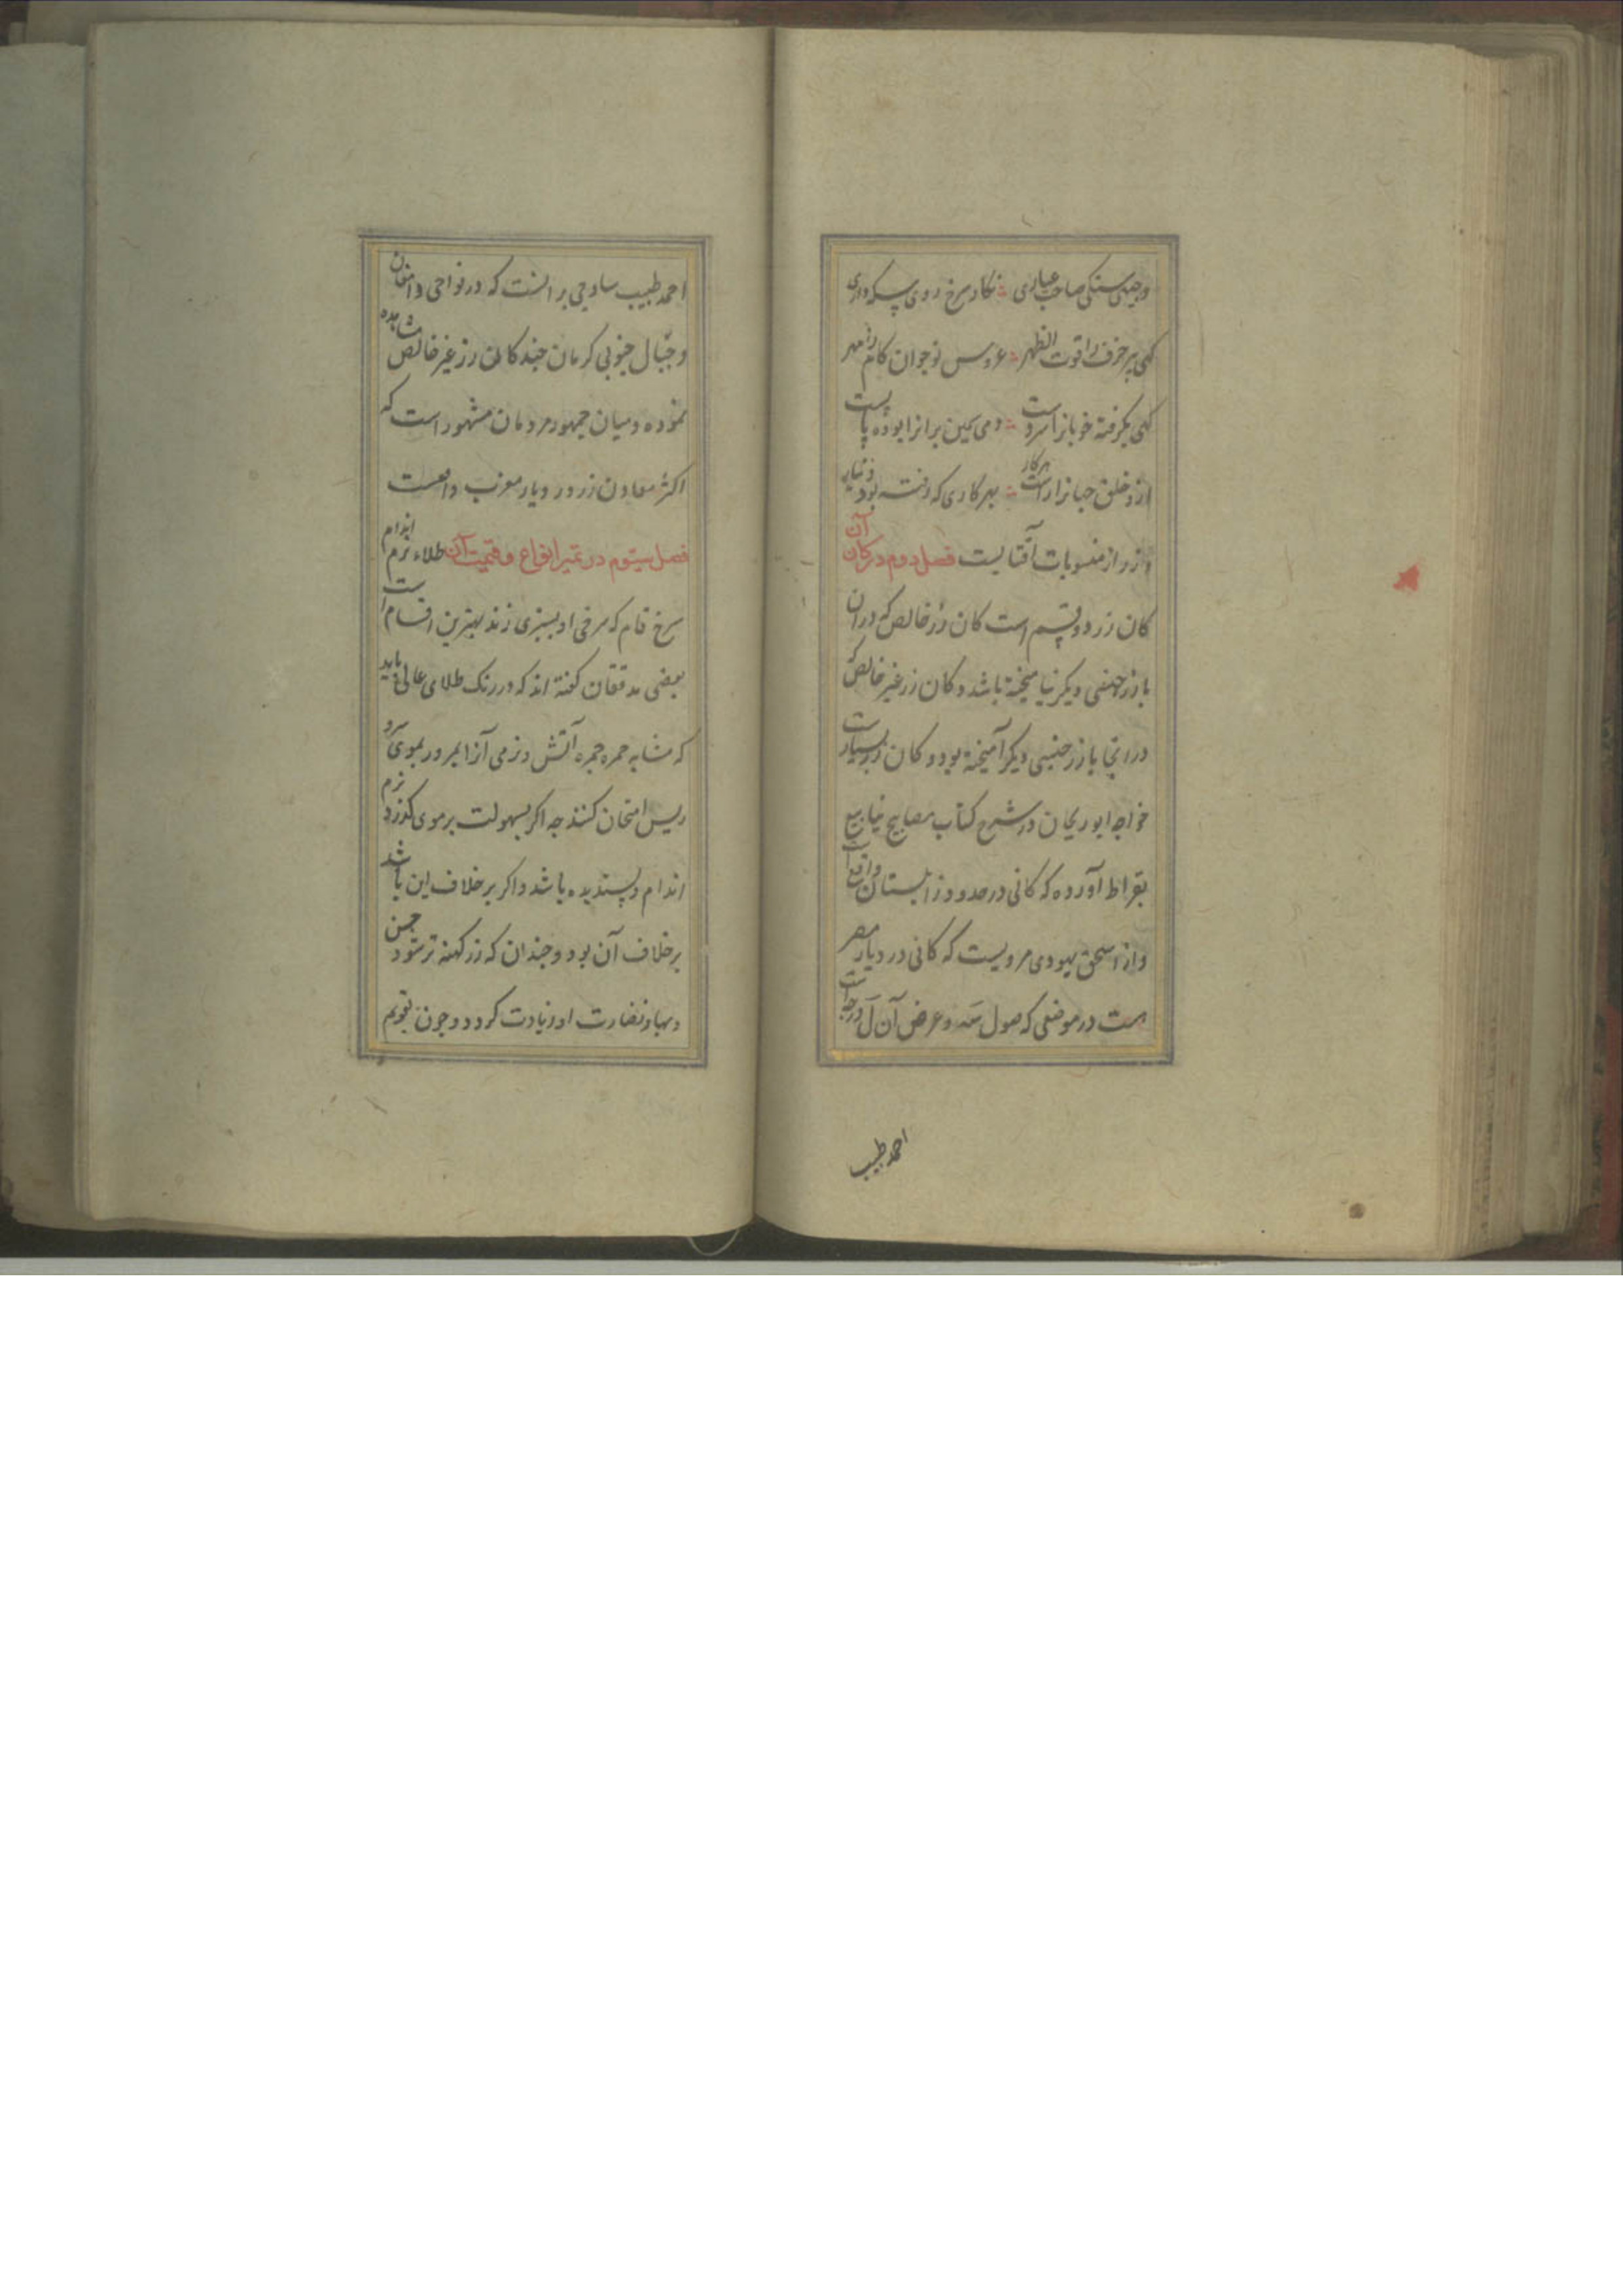 وجیهی سنکی صاحب عیاری نکار سرخ روی سکه داری
کهی پیر خرف را قوت الظهر عروس نوجوان کام را مهر
کهی بکرفته خوبانرا سر دست
ازو خلق جهانرا راست هر کار بهر کاری که رفته بود دینار
و زر از منسوبات آفتابست فصل دوم در کان آن
کان زر دو قسم است کان زر خالص که در ان
با زر جنسی دیکر نیامیخته باشد و کان زر غیر خالص که
در انجا با زر جنسی دیکر آمیخته بود و کان زر بسیارست
خواجه ابوریحان در شرح کتاب مصابیح ینابیع
بقراط آورده که کانی در حدود زابلستان واقع است
و از اسحق یهودی مرویست که کانی در دیار مصر
است در موضعی که طول و عرض آن ل درجه است
احمد طبیب
احمد طبیب ساوجی بر انست که در نواحی دامغان
و جبال جنوبی کرمان چند کان زر غیر خالص مشاهده
نموده و میان جمهور مردمان مشهور است که
اکثر معادن زر در دیار مغرب واقعست
فصل سیوم در تمیز انواع و قیمت آن طلاء نرم اندام
سرخ فام که سرخی او بسبزی زند بهترین اقسام است
بعضی مدققان کفته اند که در رنک طلای عالی باید
که مشابه حمره جمره آتش و نرمی آنرا بمرور بموی سر و
ریش امتحان کنند جه اکر بسهولت بر موی کذرد نرم
اندام و پسندیده باشد و اکر بر خلاف این باشد
بر خلاف آن بود و جندان که زر کهنه تر شود حسن
و بها و نضارت او زیادت کردد و جون بقویم